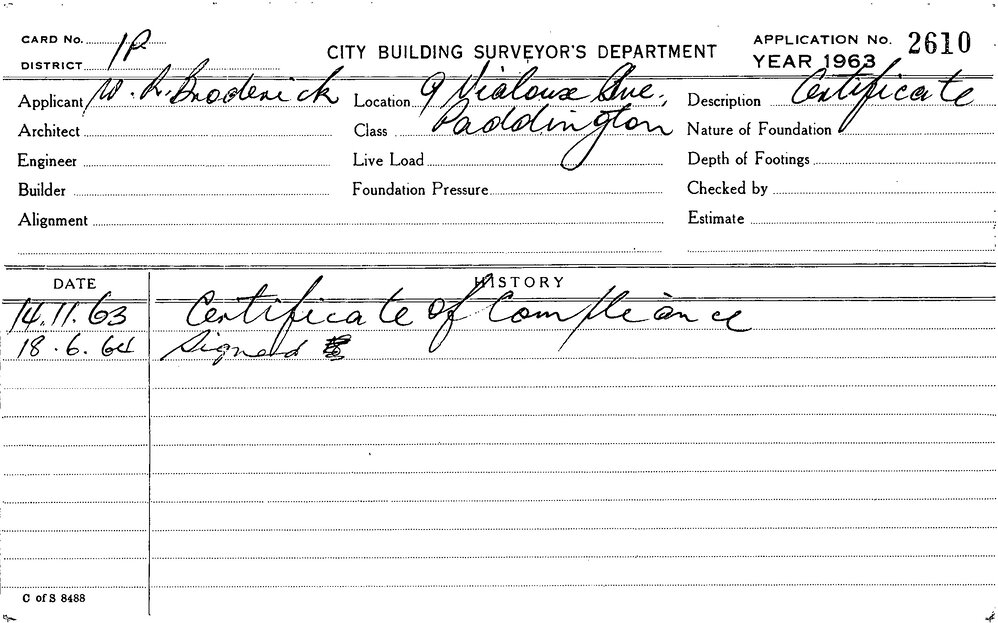 CARD No. 1P
CITY BUILDING SURVEYOR'S DEPARTMENT
APPLICATION No. 2610
DISTRICT
YEAR 1963
Applicant W. R. Broderick Location 9 Vialoux Ave., Description Certificate
Architect Class Paddington Nature of Foundation
Engineer Live Load Depth of Footings
Builder Foundation Pressure Checked by
Alignment Estimate
DATE HISTORY
14.11.63 Certificate of Compliance
18.6.64 Signed
C of S 8488